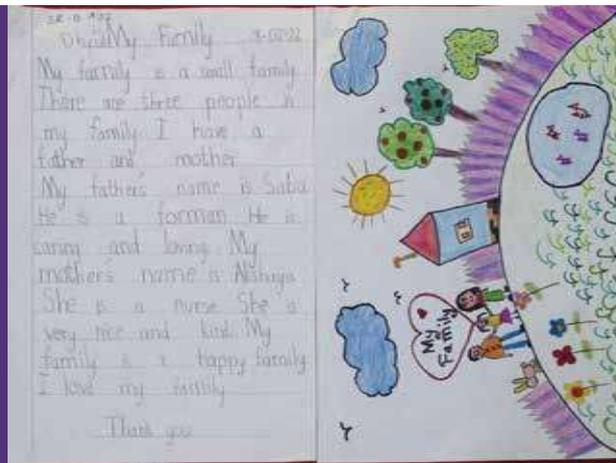 My Family
My family is a small family
There are three people in
my family I have a
father and mother
My father's name is Sabu
He is a forman He is
caring and loving My
mother's name is
She is a nurse She is
very nice and kind My
family is a happy family
I love my family
Thank you
My
Family